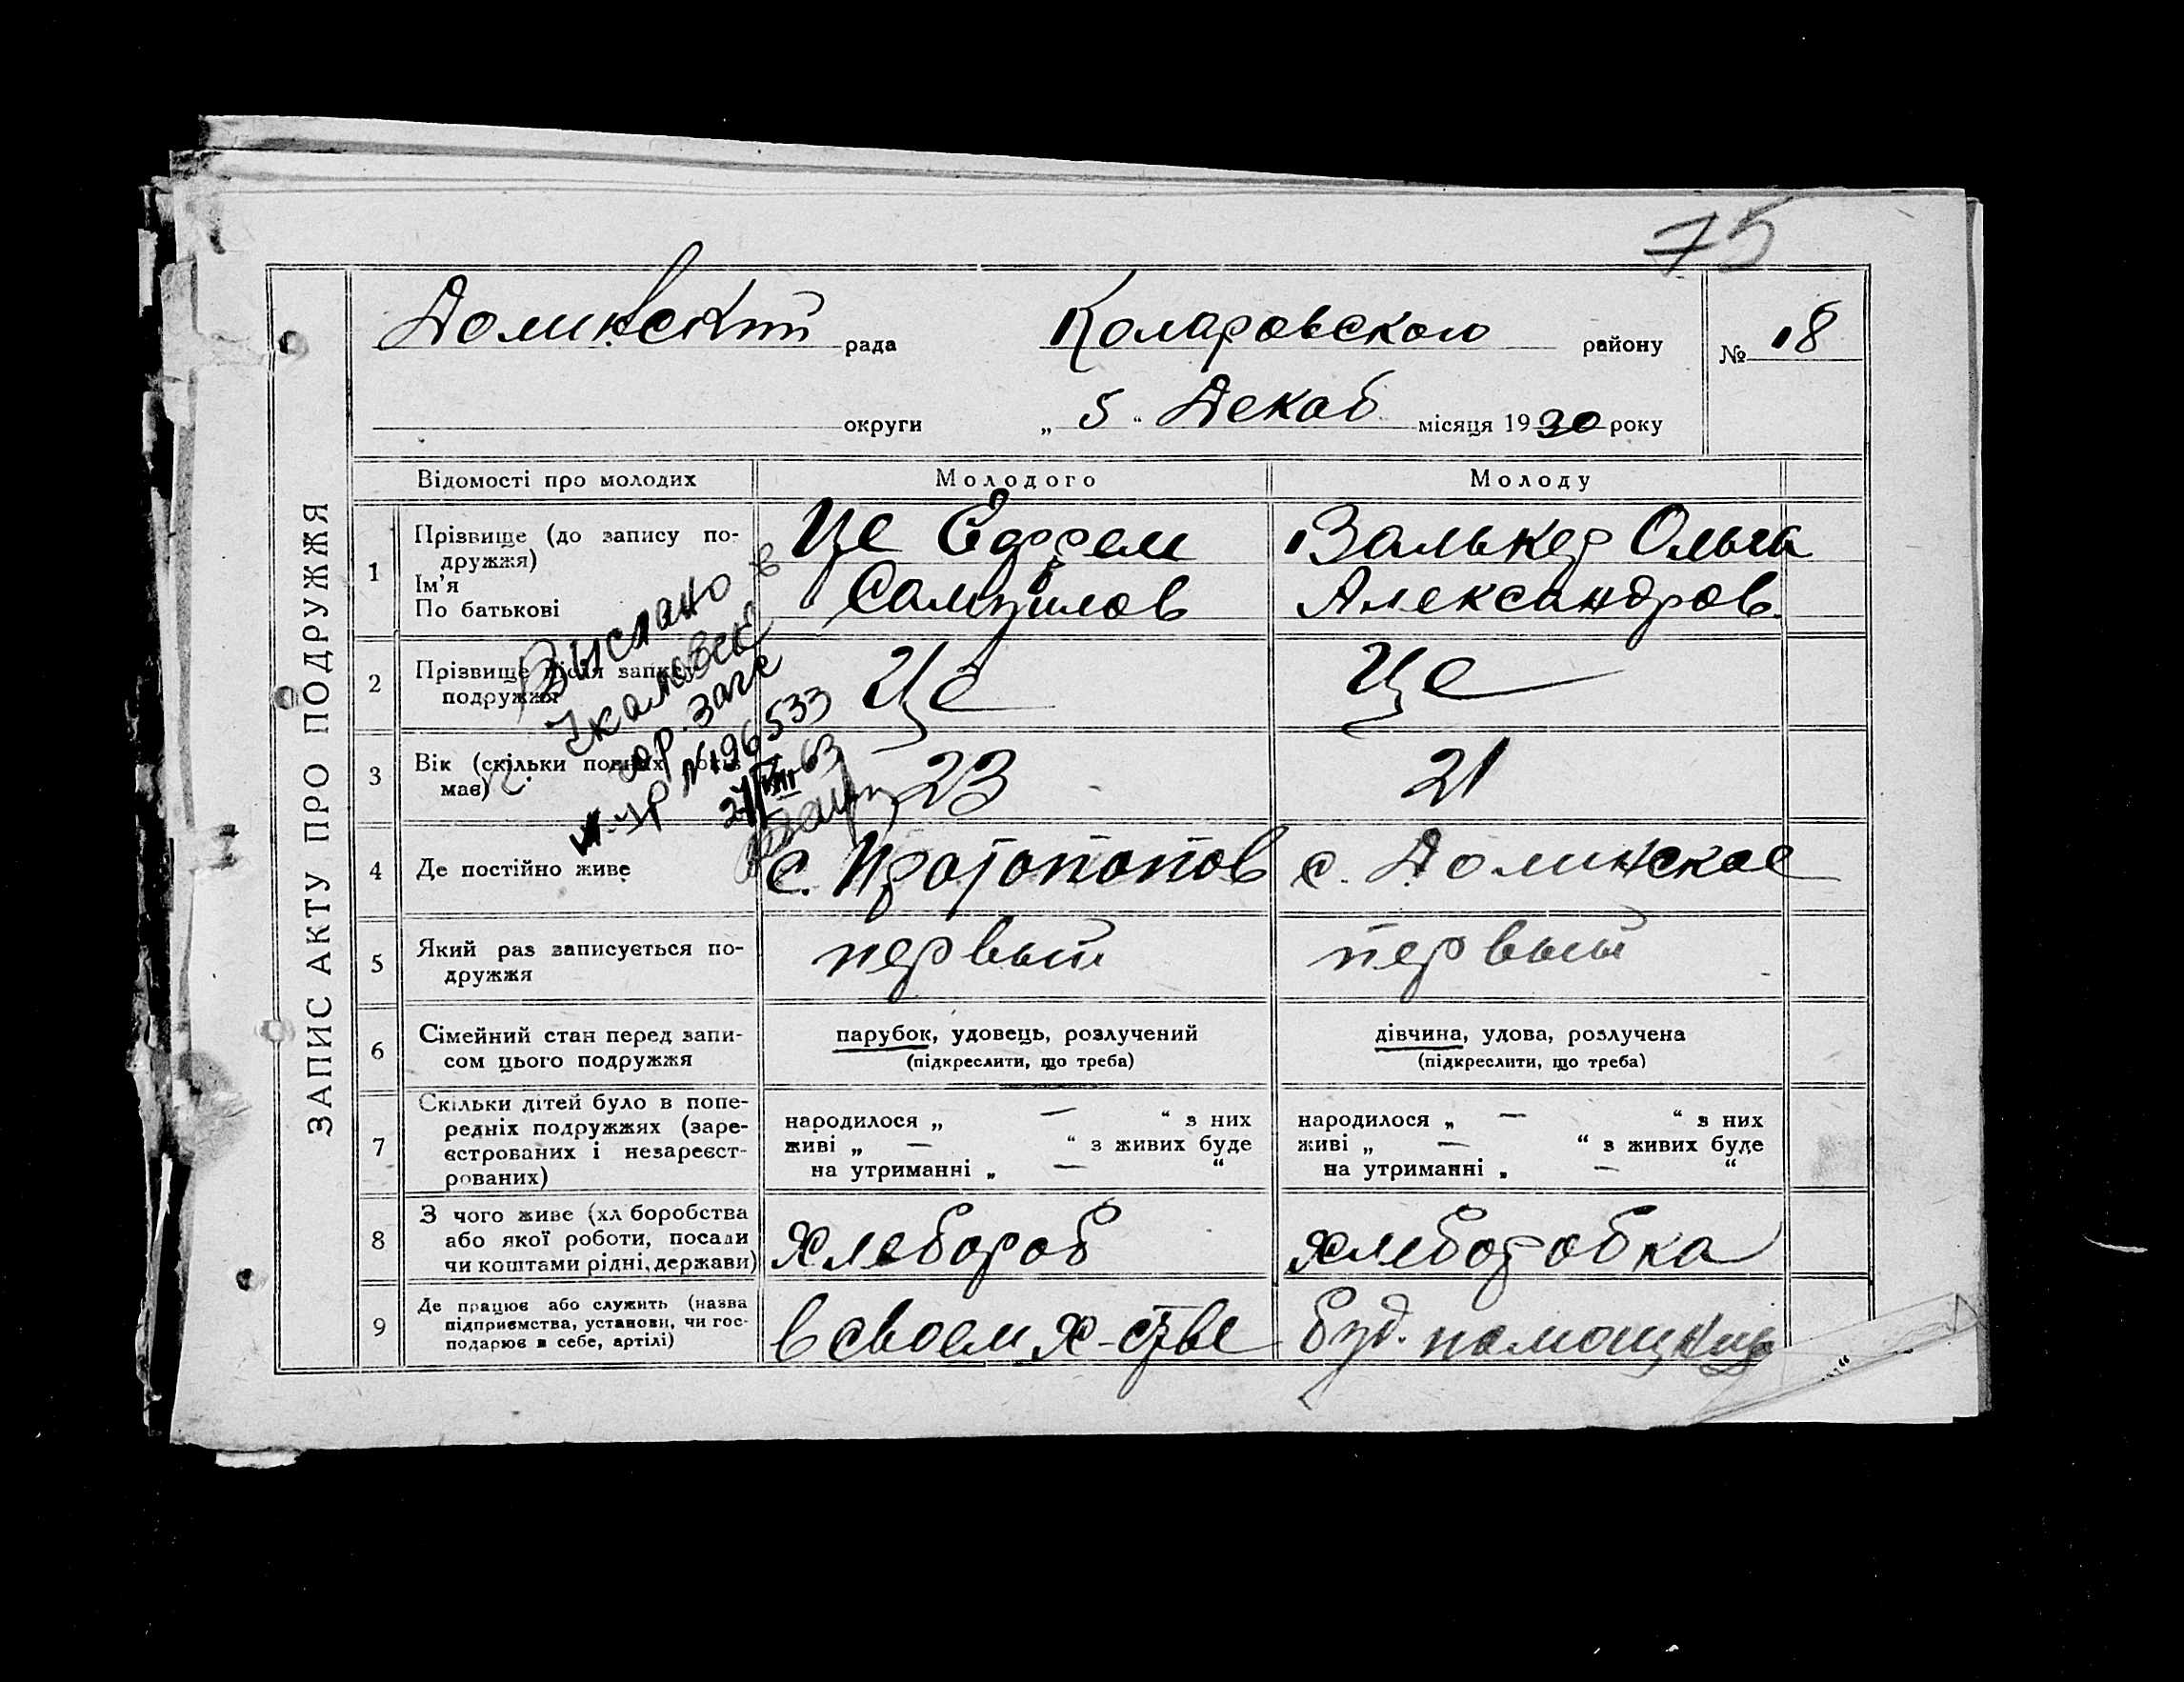 75
Долинский рада Коларовского району № 18
округи „ 5 “ Декаб. місяця 1930 року
ЗАПИС АКТУ ПРО ПОДРУЖЖЯ
Відомості про молодих Молодого Молоду
1 Прізвище (до запису по-
дружжя)
Ім'я
По батькові
Це Ефрем
Самуилов
Валькер Ольга
Александров.
2 Прізвище після запису
подружжя
Це Це
3 Вік (скільки повних років
має)
23 21
Выслано в
4 Де постійно живе с. Протопопов с. Долинское
5 Який раз записується по-
дружжя
первый первый
6 Сімейний стан перед запи-
сом цього подружжя
парубок, удовець, розлучений
(підкреслити, що треба)
дівчина, удова, розлучена
(підкреслити, що треба)
7 Скільки дітей було в попе-
редніх подружжях (заре-
єстрованих і незареєст-
рованих)
народилося „ — “ з них
живі „ — “ з живих буде
на утриманні „ — “
народилося „ — “ з них
живі „ — “ з живих буде
на утриманні „ — “
8 З чого живе (хл боробства
або якої роботи, посади
чи коштами рідні, держави)
хлебороб хлеборобка
9 Де працює або служить (назва
підприємства, установи, чи гос-
подарює в себе, артілі)
в своем х-стве буд. помощниц